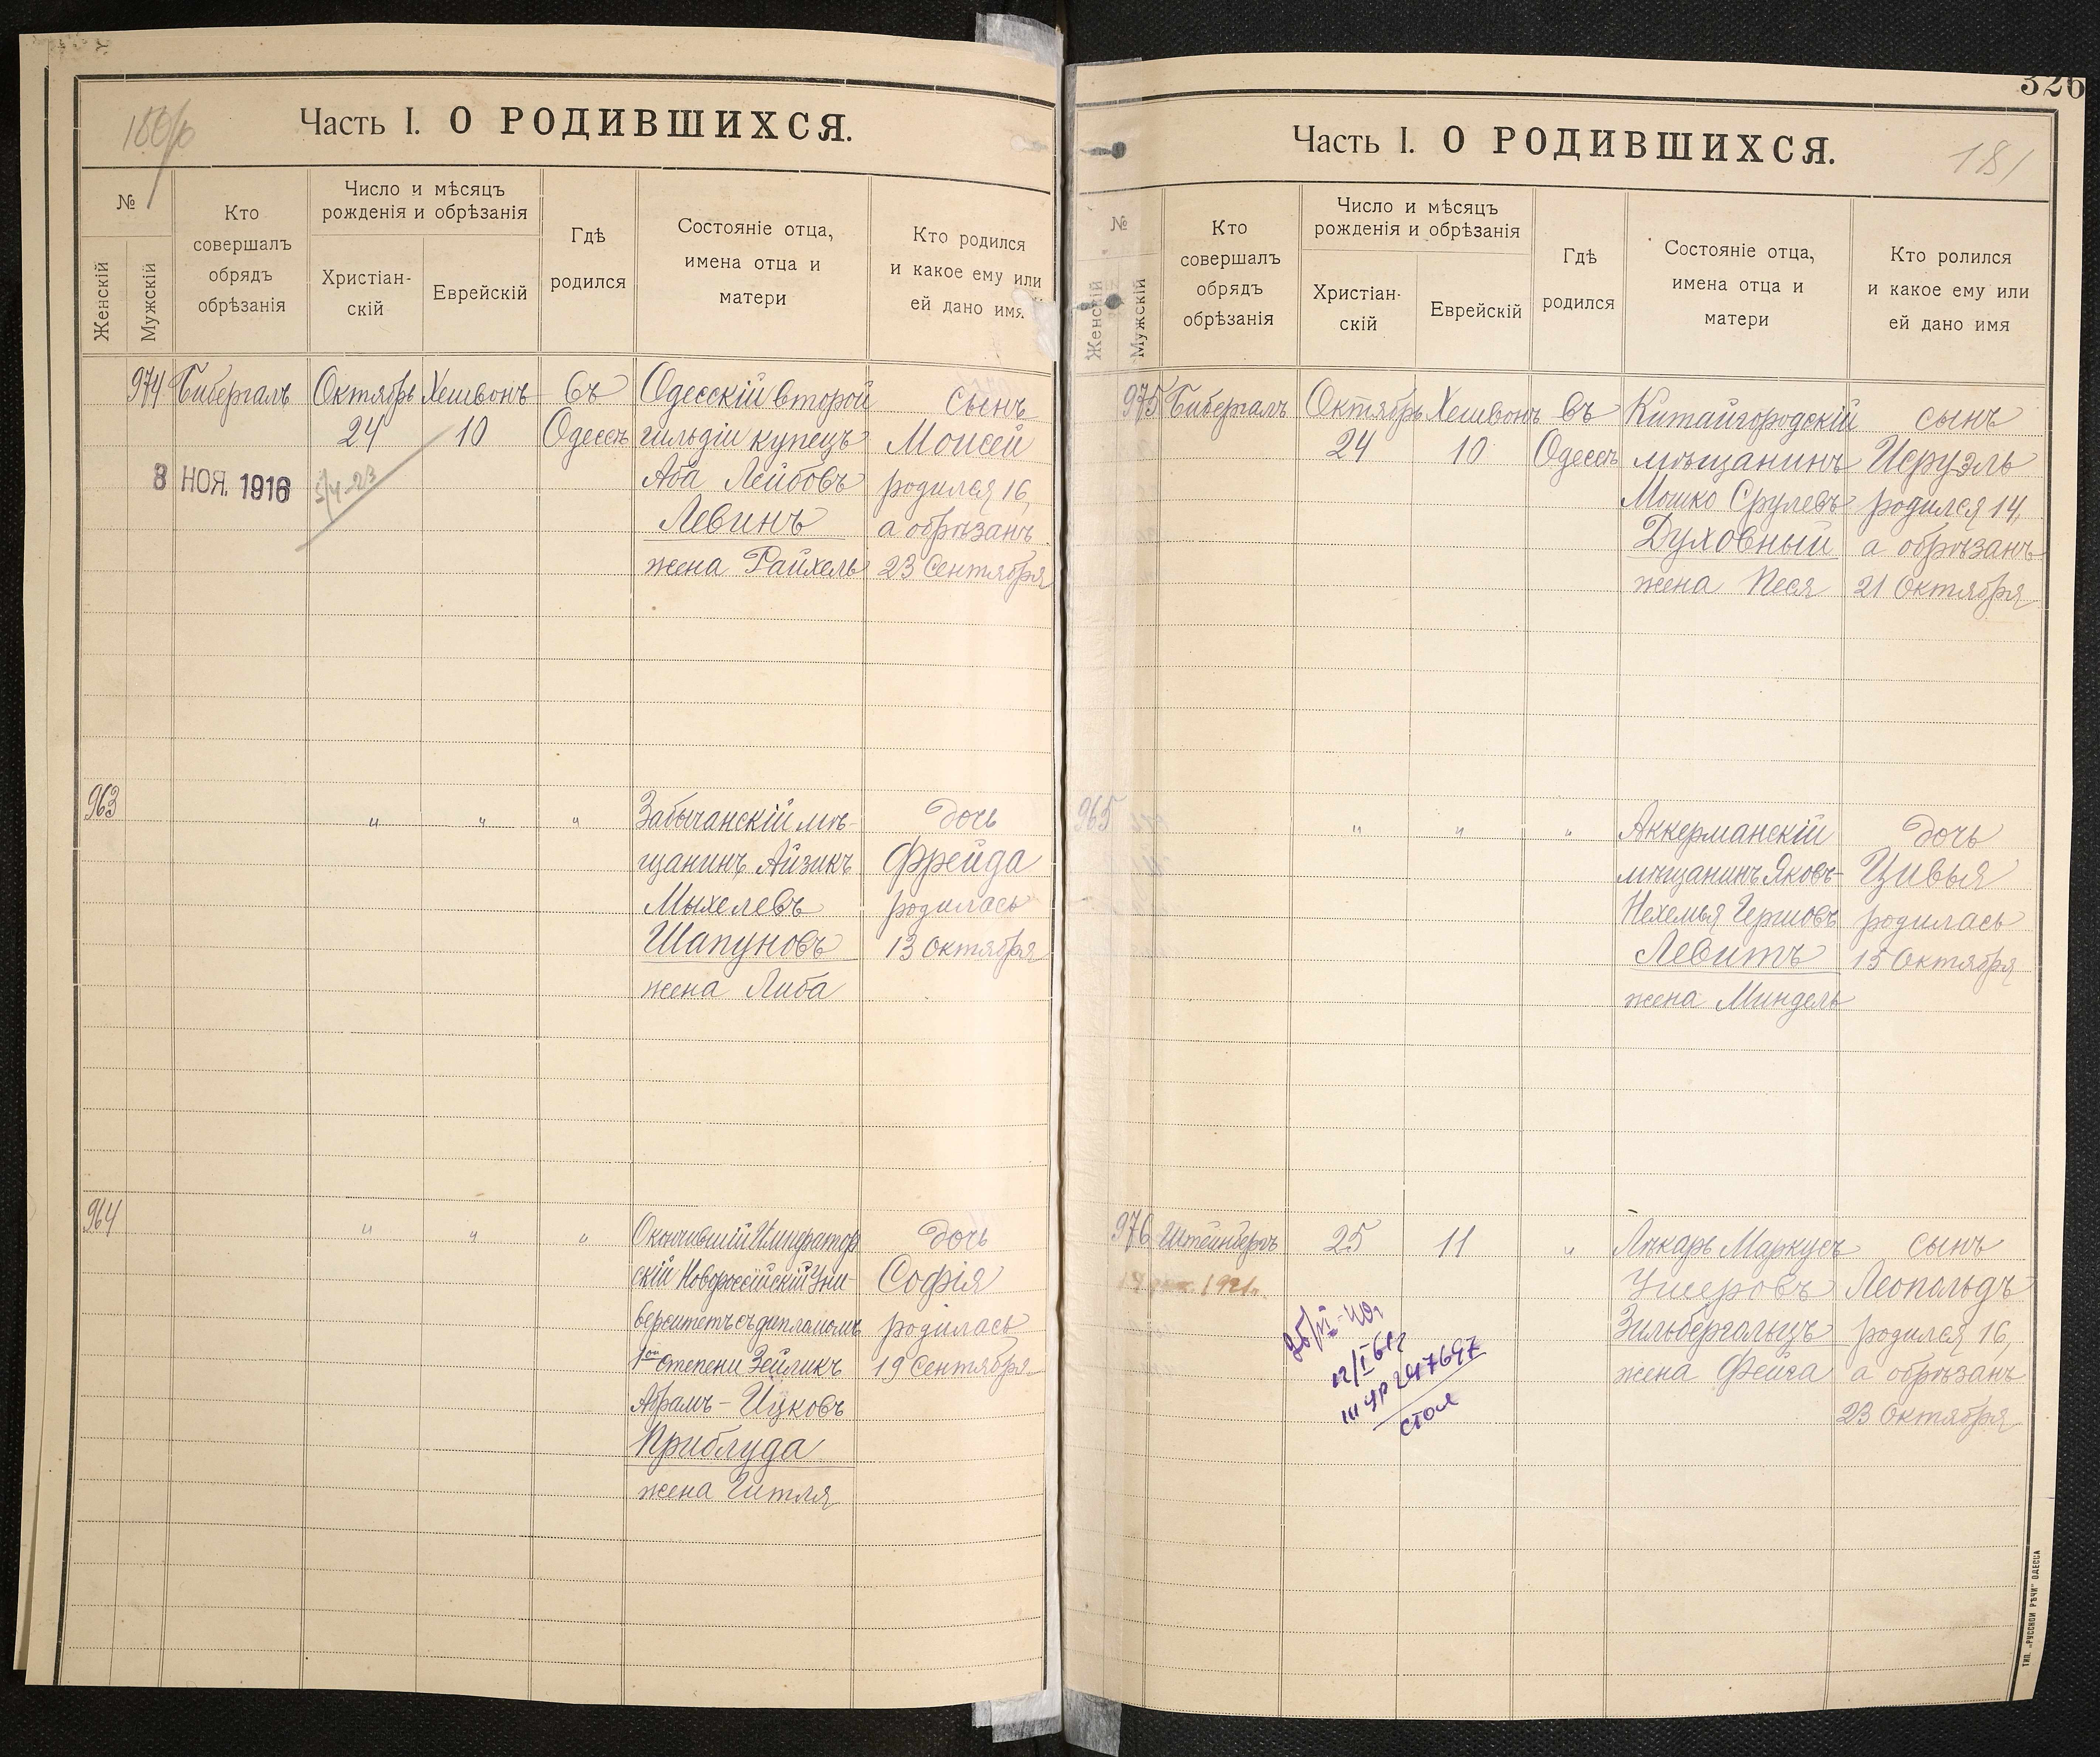 Часть I. О РОДИВШИХСЯ.
№
Женскій
Мужскій
Кто
совершалъ
обрядъ
обрѣзанія
Число и мѣсяцъ
рожденія и обрѣзанія
Христіан-
скій
Еврейскій
Гдѣ
родился
Состояніе отца,
имена отца и
матери
Кто родился
и какое ему или
ей дано имя
974
Бибергалъ
Октябрь
24
Хешвонъ
10
Въ
Одессѣ
Одесскій второй
гильдіи купецъ
Аба Лейбовъ
Левинъ
жена Райхель
сынъ
Моисей
родился 16,
а обрѣзанъ
23 Сентября
8 НОЯ. 1916
963
"
"
"
Забычанскій мѣ-
щанинъ Айзикъ
Мыхелевъ
Шапуновъ
жена Либа
дочь
Фрейда
родилась
13 Октября
964
"
"
"
Окончившій Император
скій Новороссійскій Уни-
верситетъ съ дипломомъ
1ой степени Зейликъ
Абрамъ-Ицковъ
Приблуда
жена Гитля
дочь
Софія
родилась
19 Сентября
326
181
Часть I. О РОДИВШИХСЯ.
№
Женскій
Мужскій
Кто
совершалъ
обрядъ
обрѣзанія
Число и мѣсяцъ
рожденія и обрѣзанія
Христіан-
скій
Еврейскій
Гдѣ
родился
Состояніе отца,
имена отца и
матери
Кто ролился
и какое ему или
ей дано имя
975
Бибергалъ
Октябрь
24
Хешвонъ
10
Въ
Одессѣ
Китайгородскій
мѣщанинъ
Мошко Срулевъ
Духовный
жена Песя
сынъ
Исруэль
родился 14,
а обрѣзанъ
21 Октября
965
"
"
"
Аккерманскій
мѣщанинъ Яковъ-
Нехемья Гершовъ
Левитъ
жена Миндель
дочь
Цивья
родилась
15 Октября
976
Штейнбергъ
25
11
"
Лѣкарь Маркусъ
Ушеровъ
Зильбергольцъ
жена Фейга
сынъ
Леопольдъ
родился 16,
а обрѣзанъ
23 Октября
стол
ТИП. „РУССКОЙ РѢЧИ" ОДЕССА